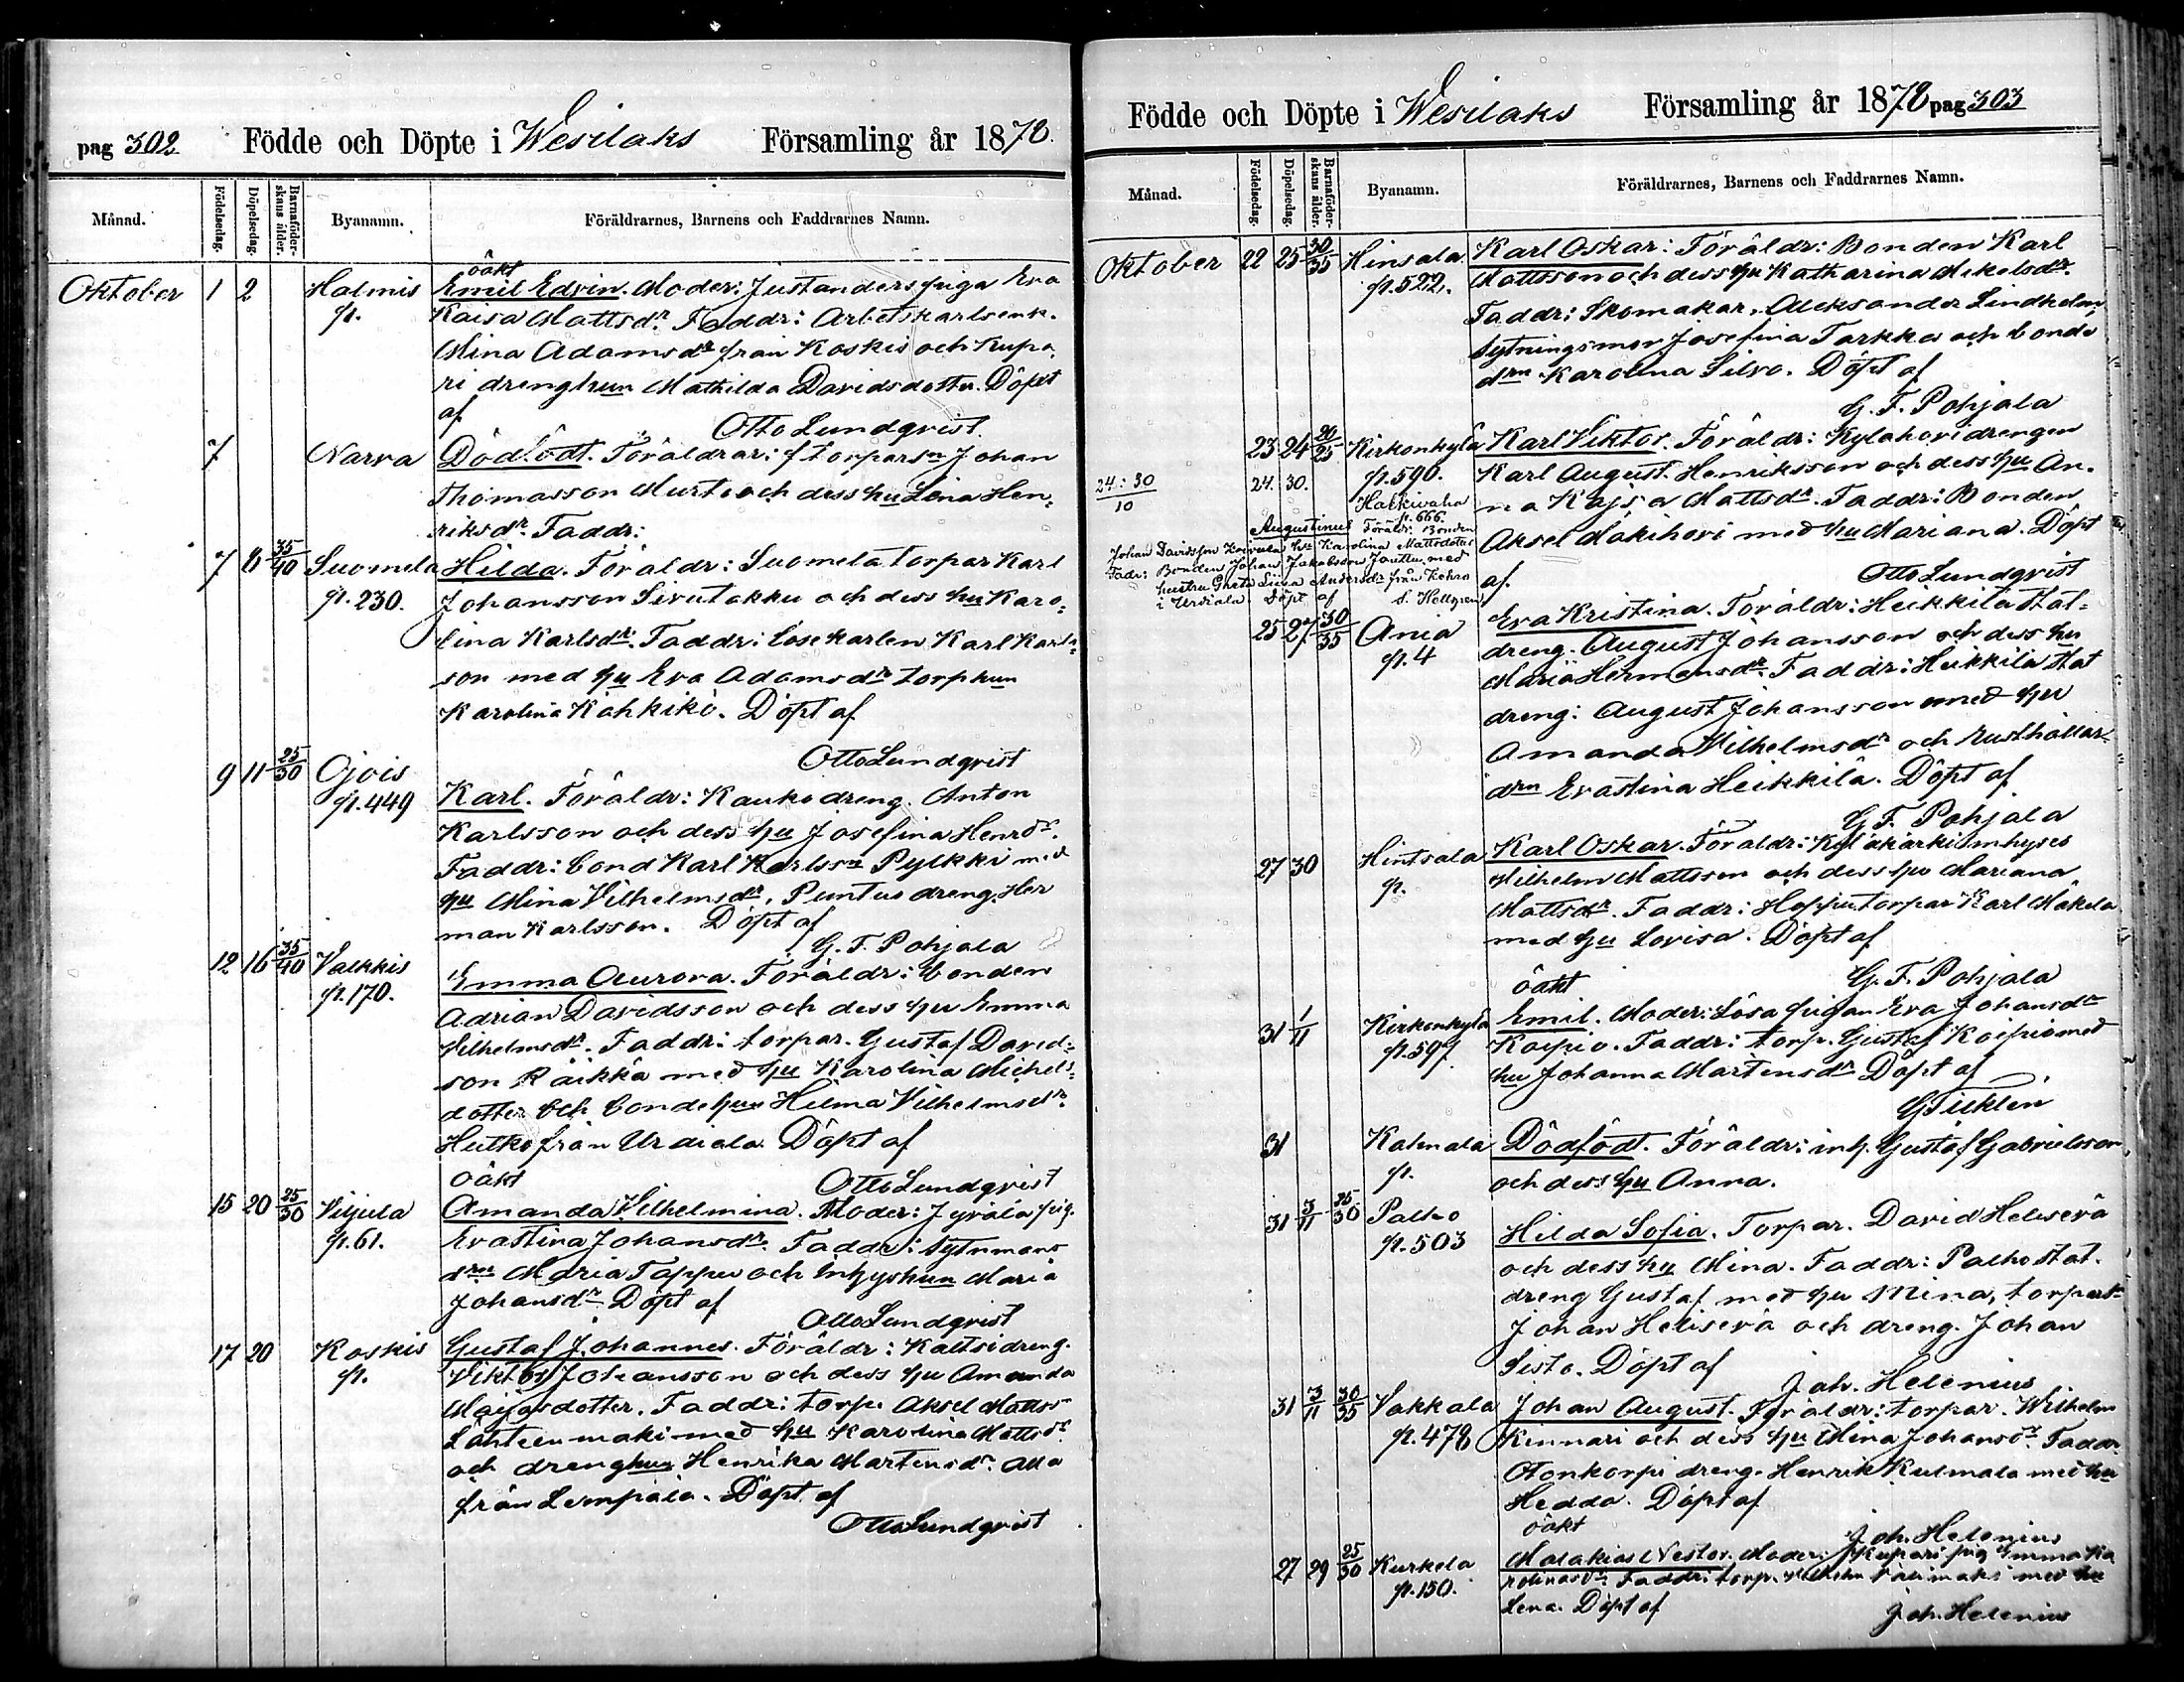 pag 302 Födde och Döpte i Wesilaks Församling år 1878.
Månad. Födelsedag. Döpelsedag. Barnaföderskans ålder. Byanamn. Föräldrarnes, Barnens och Faddrarnes Namn.
oäkt
Oktober 1 2 Halmis Emil Edvin. Moder: Justanders piga Eva
p. Kaisa Mattsdr. Faddr: Arbetskarlsenk.
Mina Adamsdr från Koskis och Kupa,
ri drenghun Mathilda Davidsdotter. Döpt
af
Otto Lundqvist.
7 Narva Dödfödt. Föräldrar: torparsn Johan
Thomasson Murto och dess hu Lena Hen,
riksdr. Faddr:
7 8 35/40 Suomela Hilda. Föräldr: Suomela torpar Karl
p. 230. Johansson Sivutakku och dess hu Karo,
lina Karlsdr. Faddr: lösekarlen Karl Karls,
son med hu Eva Adamsdr torphun
Karolina Kähkikö. Döpt af
Otto Lundqvist
9 11 25/30 Ojois
p. 449 Karl. Föräldr: Kauko dreng. Anton
Karlsson och dess hu Josefina Henrdr.
Faddr: bond Karl Karlssn Pylkki med
hu Mina Vilhelmsdr, Puntus dreng. Her
man Karlsson. Döpt af
G. F. Pohjala
12 16 35/40 Valkkis Emma Aurora. Föräldr: bonden
p. 170. Adrian Davidsson och dess hu Emma
Vilhelmsdr. Faddr: torpar. Gustaf David=
son Räikkä med hu Karolina Michels=
dotter och bondehun Hilma Vilhelmsdr.
Hutko från Urdiala. Döpt af
oäkt Otto Lundqvist
15 20 25/30 Vijula Amanda Vilhelmina. Moder: Jyrälä pig.
p. 61. Evastina Johansdr. Faddr: sytnmans
drn Maria Tappu och inhyshun Maria
Johansdr. Döpt af
Otto Lundqvist
17 20 Koskis Gustaf Johannes. Föräldr: Kaltsi dreng.
p. Viktor Johansson och dess hu Amanda
Majasdotter. Faddr: torpr Aksel Matts
Lähteenmäki med hu Karolina Mattsdr.
och drenghun Henrika Martensdr. Alla
från Lempäälä. Döpt af
Otto Lundqvist
Födde och Döpte i Wesilaks Församling år 1878 pag 303
Månad. Födelsedag. Döpelsedag. Barnaföderskans ålder. Byanamn. Föräldrarnes, Barnens och Faddrarnes Namn.
Oktober 22 25 30/35 Hinsala Karl Oskar: Föräldr: Bonden Karl
p. 522. Mattsson och dess hu Katharina Mikelsdr.
Faddr: Skomakar. Aleksander Lindholm,
sytningsmor Josefina Tarkka och bonde
drn Karolina Silvo. Döpt af
G. F. Pohjala
23 24 20/25 Kirkonkylä Karl Viktor. Föräldr: Kylähovi drengen
p. 590. Karl August Henriksson och dess hu An.
na Kajsa Mattsdr. Faddr: Bonden
Aksel Mäkihovi med hu Mariana. Döpt
af.
Otto Lundqvist
24: 30/10 24. 30. Hakkivaha
p. 666.
Augustinus Föräldr: Bonden
Johan Davidsson Hu Karolina Mattsdotter
Fadr: Bonden Johan Jakobsson Janttu med
hustru Greta Lisa Andersdr från
i Urdiala Döpt af S. Hellgren
25 27 30/35 Ania Eva Kristina. Föräldr: Heikkilä stat=
p. 4 dreng. August Johansson och dess hu
Maria Hermansdr. Faddr: Heikkilä stat
dreng: August Johansson med hu
Amanda Vilhelmsdr och rusthållar-
drn Evastina Heikkilä. Döpt af
G. F. Pohjala
27 30 Hintsala Karl Oskar. Föräldr: Kyläkärki inhyses
p. Wilhelm Mattsson och dess hu Mariana
Mattsdr. Faddr: Hoppu torpar Karl Mäkelä
med hu Lovisa. Döpt af
G. F. Pohjala
oäkt
31 1/11 Kirkonkylä Emil. Moder: Lösa pigan Eva Johansdr
p. 597 Koipio. Faddr: torp. Gustaf Koipio med
hu Johanna Mårtensdr Döpt af
31 Kalmala Dödfödt. Föräldr: inh. Gustaf Gabrielsson
p. och dess hu Anna.
31 3/11 25/30 Palho Hilda Sofia. Torpar. David Heliserä
p. 503 och dess hu Mina. Faddr: Palho stat.
dreng Gustaf med hu Mina, torparsn
Johan Heliserä och dreng. Johan
Sisto. Döpt af
Joh. Helenius
31 3/11 30/35 Vakkala Johan August. Föräldr: torpar. Wilhelm
p. 478 Kinnari och dess hu Mina Johansdr. Faddr
Otonkorpi dreng. Henrik Kulmala med hu
Hedda. Döpt af
oäkt Joh. Helenius
27 29 25/30 Kurkela Malakias Nestor. Moder: Kupari pig Emma Ka
p. 150. rolinasdr. Faddr: torp. Wilhelm Palimäki med hu
Lena. Döpt af
Joh. Helenius